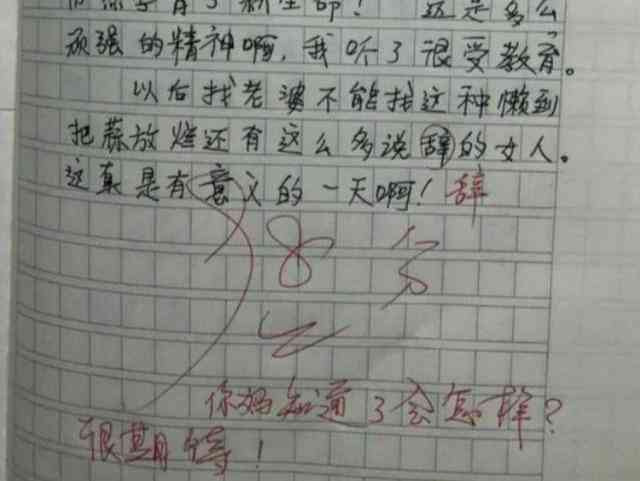 育了新生命！这是多么
顽强的精神啊，我听了很受教育。
以后找老婆不能找这种懒到
把蒜放烂还有这么多说辞的女人。
这真是有意义的一天啊！辞
8分
你妈知道了会怎样？
很期待！